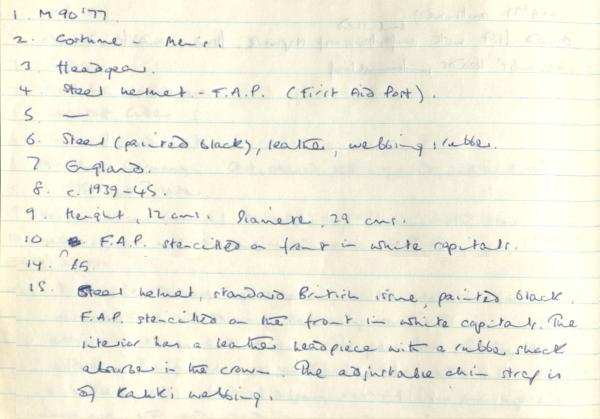 1. M90'77
2. Costume - Men's.
3 Headgear.
4 Steel helmet - F.A.P. (First Aid Post).
5. —
6. Steel (painted black), leather, webbing, rubber.
7 England.
8. c. 1939-45.
9 Height, 12 cms. Diameter, 29 cms.
10 F.A.P. stencilled on front in white capitals.
14. £5
15. Steel helmet, standard British issue, painted black.
F.A.P. stencilled on the front in white capitals. The
interior has a leather headpiece with a rubber shock
absorber in the crown. The adjustable chin strap is
of Kahki webbing.